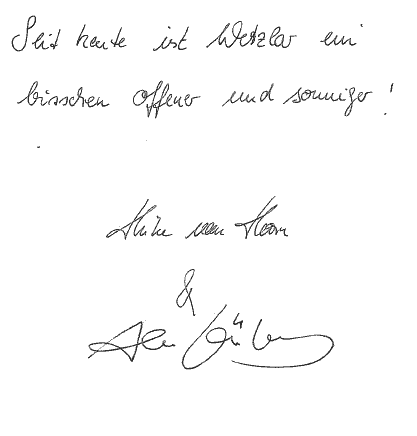 Seit heute ist Wetzlar ein
bisschen offener und sonniger!
van Hoorn
&